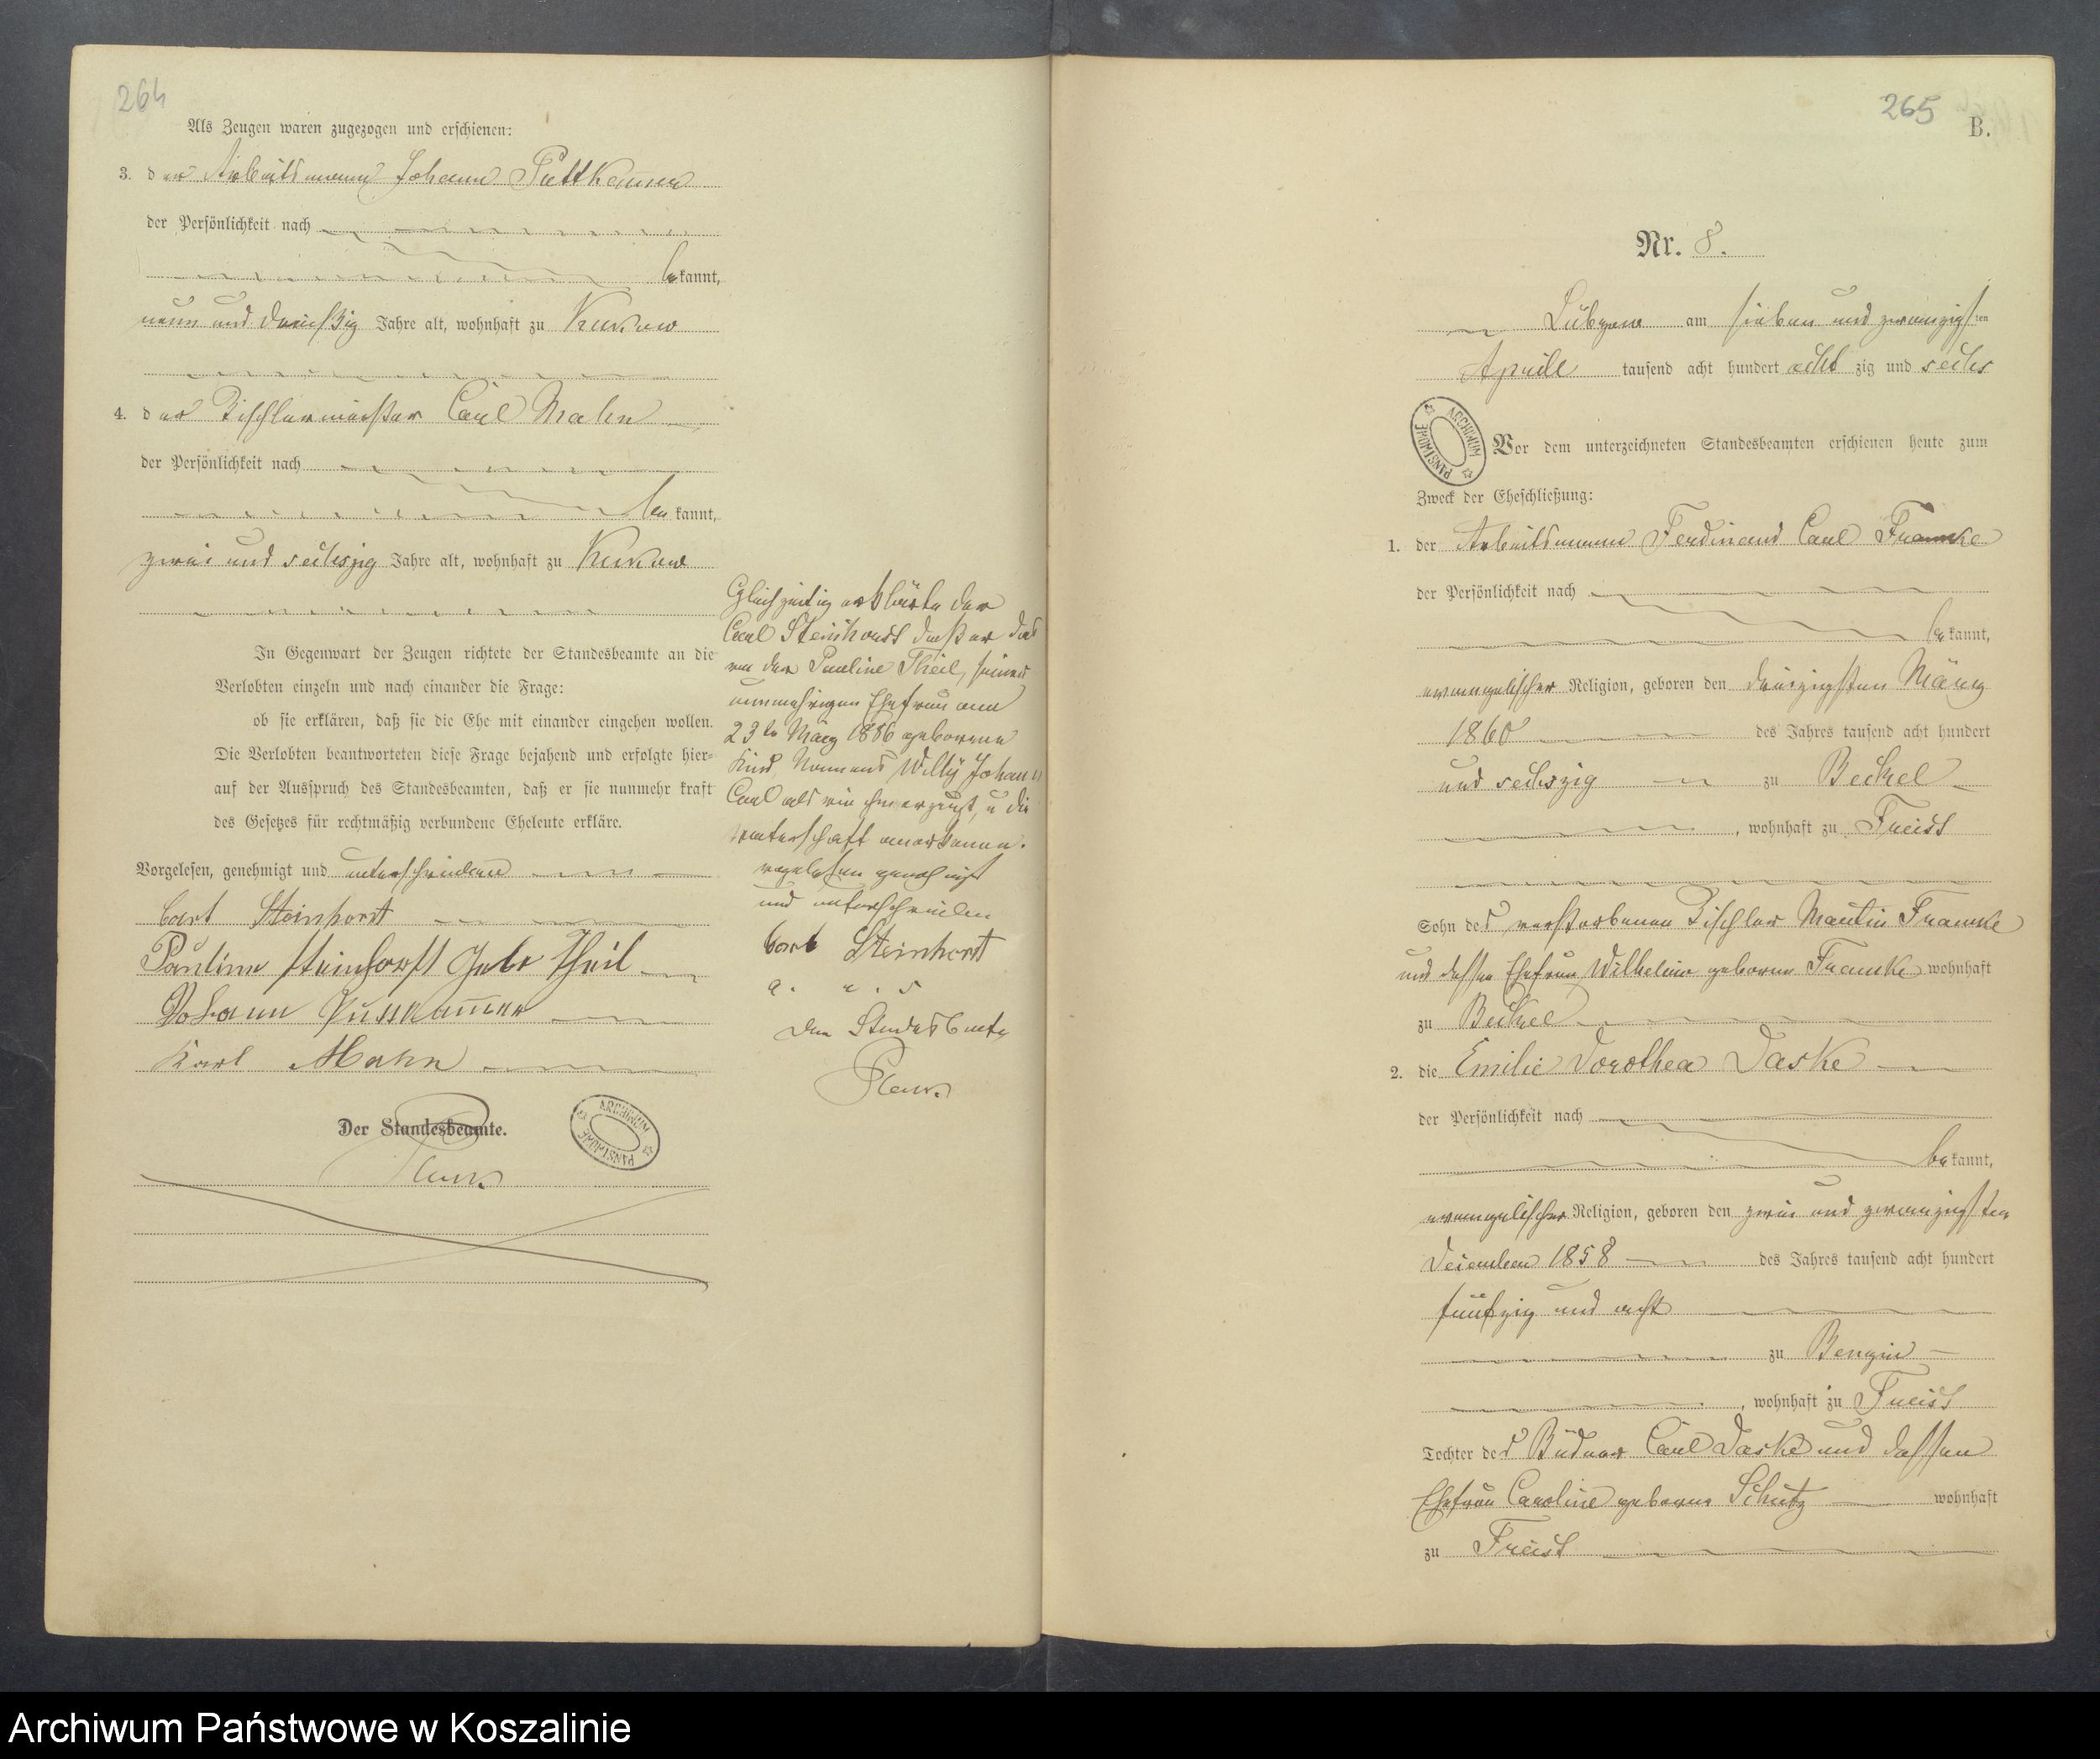 264
Als Zeugen waren zugezogen und erschienen:
3. der Arbeitsmann Johann Puttkamer
der Persönlichkeit nach
bekannt,
neun und dreißig Jahre alt, wohnhaft zu Kukow
4. der Tischlermeister Carl Mahn
der Persönlichkeit nach
bekannt,
zwei und sechszig Jahre alt, wohnhaft zu Kukow
In Gegenwart der Zeugen richtete der Standesbeamte an die
Verlobten einzeln und nach einander die Frage:
ob sie erklären, daß sie die Ehe mit einander eingehen wollen.
Die Verlobten beantworteten diese Frage bejahend und erfolgte hier-
auf der Ausspruch des Standesbeamten, daß er sie nunmehr kraft
des Gesetzes für rechtmäßig verbundene Eheleute erkläre.
Vorgelesen, genehmigt und unterschrieben
Carl Steinhorst
Pauline Steinhorst geb. Theil
Johann Puttkamer
Karl Mahn
Der Standesbeamte.
ARCHIWUM PAŃSTWOWE
Gleichzeitig erklärte der
Carl Steinhorst daß er das
von der Pauline Theil, seiner
nunmehrigen Ehefrau am
23ten März 1886 geborene
Kind, Namens Willy Johann
Carl als von ihm erzeugt, u die
Vaterschaft anerkenne.
vorgelesen genehmigt
und unterschrieben
Carl Steinhorst
a. u. s
Der Standesbeamte
265
B.
Nr. 8.
Lübzow am sieben und zwanzigsten
April tausend acht hundert achtzig und sechs
ARCHIWUM PAŃSTWOWE
Vor dem unterzeichneten Standesbeamten erschienen heute zum
Zweck der Eheschließung:
1. der Arbeitsmann Ferdinand Carl Framke
der Persönlichkeit nach
bekannt,
evangelischer Religion, geboren den dreizigsten März
1860 des Jahres tausend acht hundert
und sechszig zu Beckel
, wohnhaft zu Freist
Sohn des verstorbenen Tischler Martin Framke
und dessen Ehefrau Wilhelmine geborne Framke wohnhaft
zu Beckel
2. die Emilie Dorothea Daske
der Persönlichkeit nach
bekannt,
evangelischer Religion, geboren den zwei und zwanzigsten
December 1858 des Jahres tausend acht hundert
fünfzig und acht
zu Bengin
, wohnhaft zu Freist
Tochter des Büdner Carl Daske und dessen
Ehefrau Caroline geborne Schutz wohnhaft
zu Freist
Archiwum Państwowe w Koszalinie